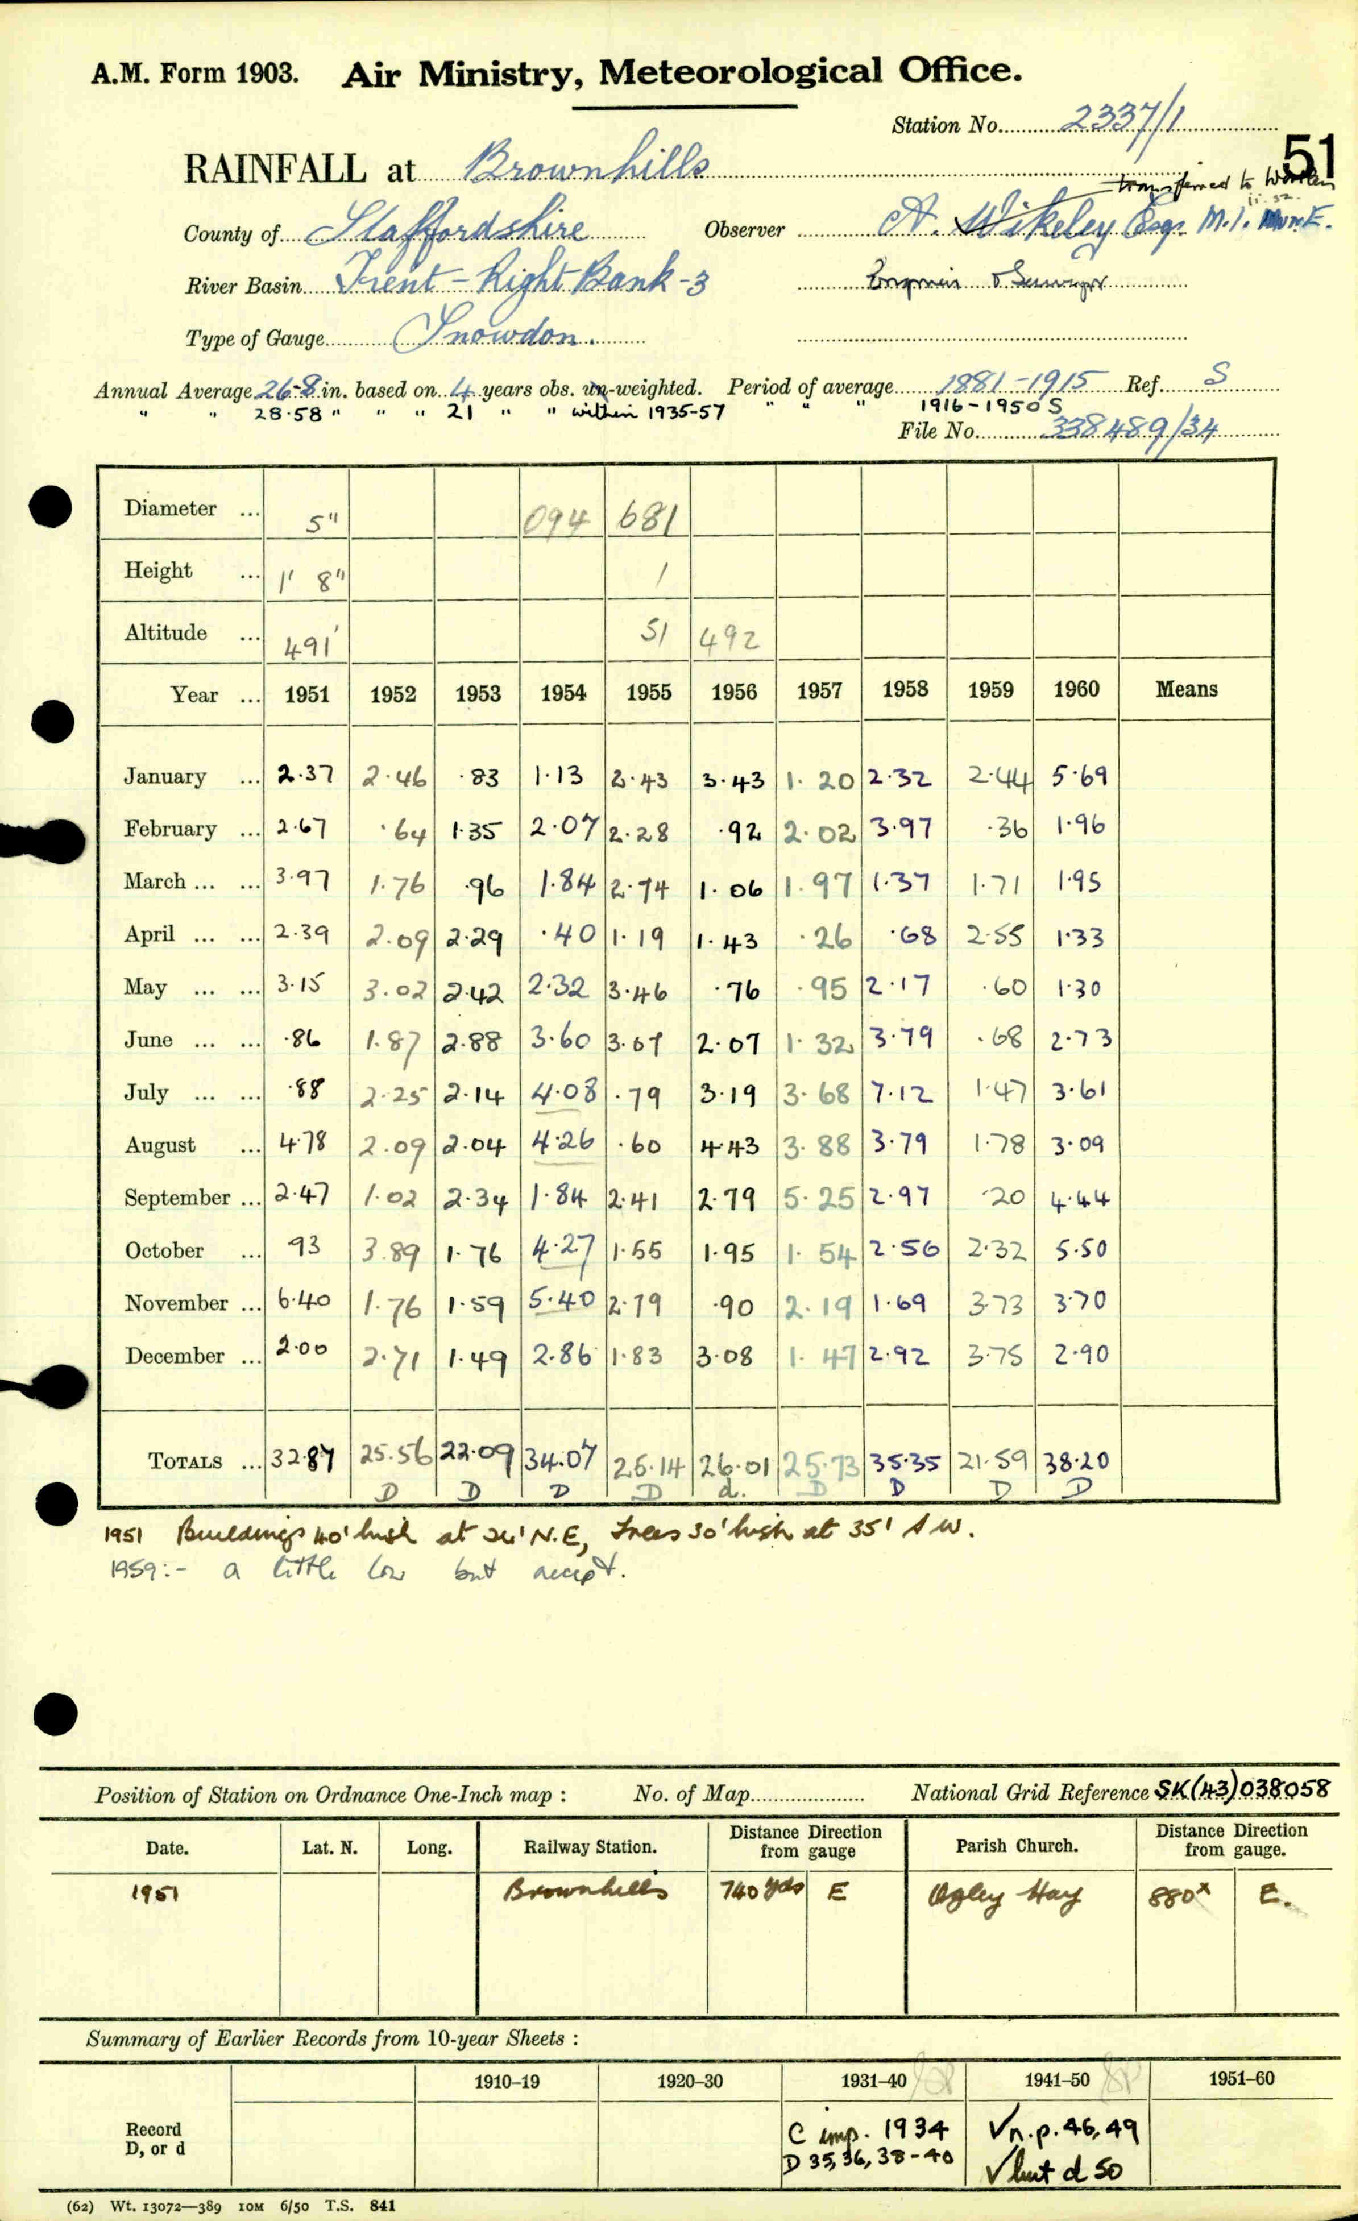 A.M. Form 1903. Air Ministry, Meteorological Office.
Station No. 2337/1
51
RAINFALL at Brownhills
transferred to
County of Staffordshire Observer A. Wikeley Esq. M.I. Mun.E.
River Basin Trent - Right Bank - 3 Engineer & Surveyor
Type of Gauge Snowdon.
Annual Average 26.8 in. based on 4 years obs. un-weighted. Period of average 1881-1915 Ref. S
" " 28.58 " " " 21 " " within 1935-57 " " " 1916-1950 S
File No. 338489/34
Diameter ... 5" 094 681
Height ... 1' 8" 1
Altitude ... 491' 51 492
Year ... 1951 1952 1953 1954 1955 1956 1957 1958 1959 1960 Means
January ... 2.37 2.46 .83 1.13 2.43 3.43 1.20 2.32 2.44 5.69
February ... 2.67 .64 1.35 2.07 2.28 .92 2.02 3.97 .36 1.96
March ... ... 3.97 1.76 .96 1.84 2.74 1.06 1.97 1.37 1.71 1.95
April ... ... 2.39 2.09 2.29 .40 1.19 1.43 .26 .68 2.55 1.33
May ... ... 3.15 3.02 2.42 2.32 3.46 .76 .95 2.17 .60 1.30
June ... ... .86 1.87 2.88 3.60 3.07 2.07 1.32 3.79 .68 2.73
July ... ... .88 2.25 2.14 4.08 .79 3.19 3.68 7.12 1.47 3.61
August ... 4.78 2.09 2.04 4.26 .60 4.43 3.88 3.79 1.78 3.09
September ... 2.47 1.02 2.34 1.84 2.41 2.79 5.25 2.97 .20 4.44
October ... 93 3.89 1.76 4.27 1.55 1.95 1.54 2.56 2.32 5.50
November ... 6.40 1.76 1.59 5.40 2.79 .90 2.19 1.69 3.73 3.70
December ... 2.00 2.71 1.49 2.86 1.83 3.08 1.47 2.92 3.75 2.90
TOTALS ... 32.87 25.56 22.09 34.07 25.14 26.01 25.73 35.35 21.59 38.20
D D D D d. D D D D
1951 Buildings 40' high at 24' N.E, Trees 30' high at 35' S W.
1959:- a little low but accept.
Position of Station on Ordnance One-Inch map : No. of Map National Grid Reference SK(43)038058
Date. Lat. N. Long. Railway Station. Distance Direction from gauge Parish Church. Distance Direction from gauge.
1951 Brownhills 740 yds E Ogley Hay 880x E.
Summary of Earlier Records from 10-year Sheets :
1910-19 1920-30 1931-40 1941-50 1951-60
Record D, or d
C imp. 1934 √n.p. 46,49
D 35,36,38-40 √ but d 50
(62) Wt. 13072—389 10M 6/50 T.S. 841